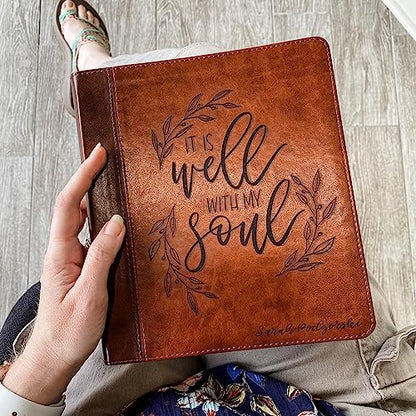 IT IS
well
WITH MY
soul
Sarah Podgorski